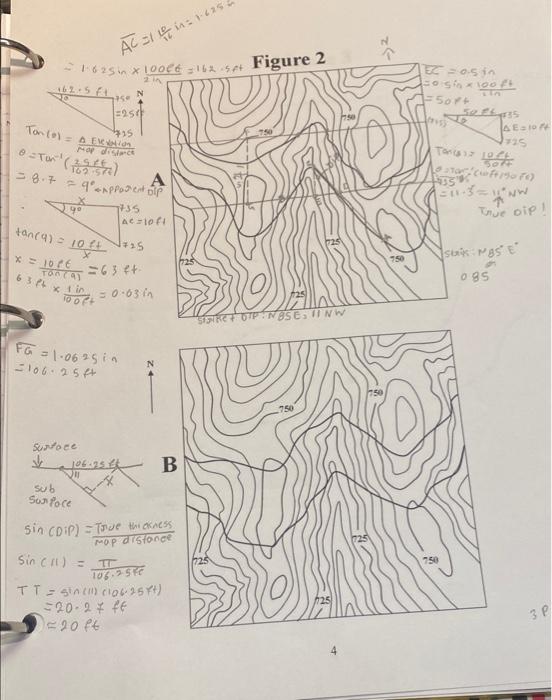 AC = 1 10/16 in = 1.625 in
= 1.625in × 100ft/1in = 162.5ft
Figure 2
N
162.5 ft
750
N
= 25ft
725
Tan(θ) = Δ Elevation / Map distance
θ = Tan⁻¹(25ft / 162.5ft)
= 8.7 = 9° → Apparent Dip
A
x
9°
735
Δe = 10ft
725
tan(9) = 10 ft / x
x = 10ft / tan(9) = 63 ft
63 ft × 1 in / 100ft = 0.63 in
EC = 0.5 in
= 0.5in × 100 ft / 1in
= 50ft
50 ft
735
ΔE = 10ft
725
Tan(θ) = 10ft / 50ft
θ = Tan⁻¹(10ft/50ft)
= 11.3 = 11° NW
True Dip!
Strike: N85°E
or
085
750
750
725
725
750
725
Strike + Dip: N85E, 11NW
FG = 1.0625 in
= 106.25ft
N
Surface
106.25ft
11
x
sub
surface
B
sin(DiP) = True thickness / map distance
Sin(11) = TT / 106.25ft
TT = sin(11)(106.25ft)
= 20.27 ft
= 20 ft
750
750
725
725
750
725
3 P
4